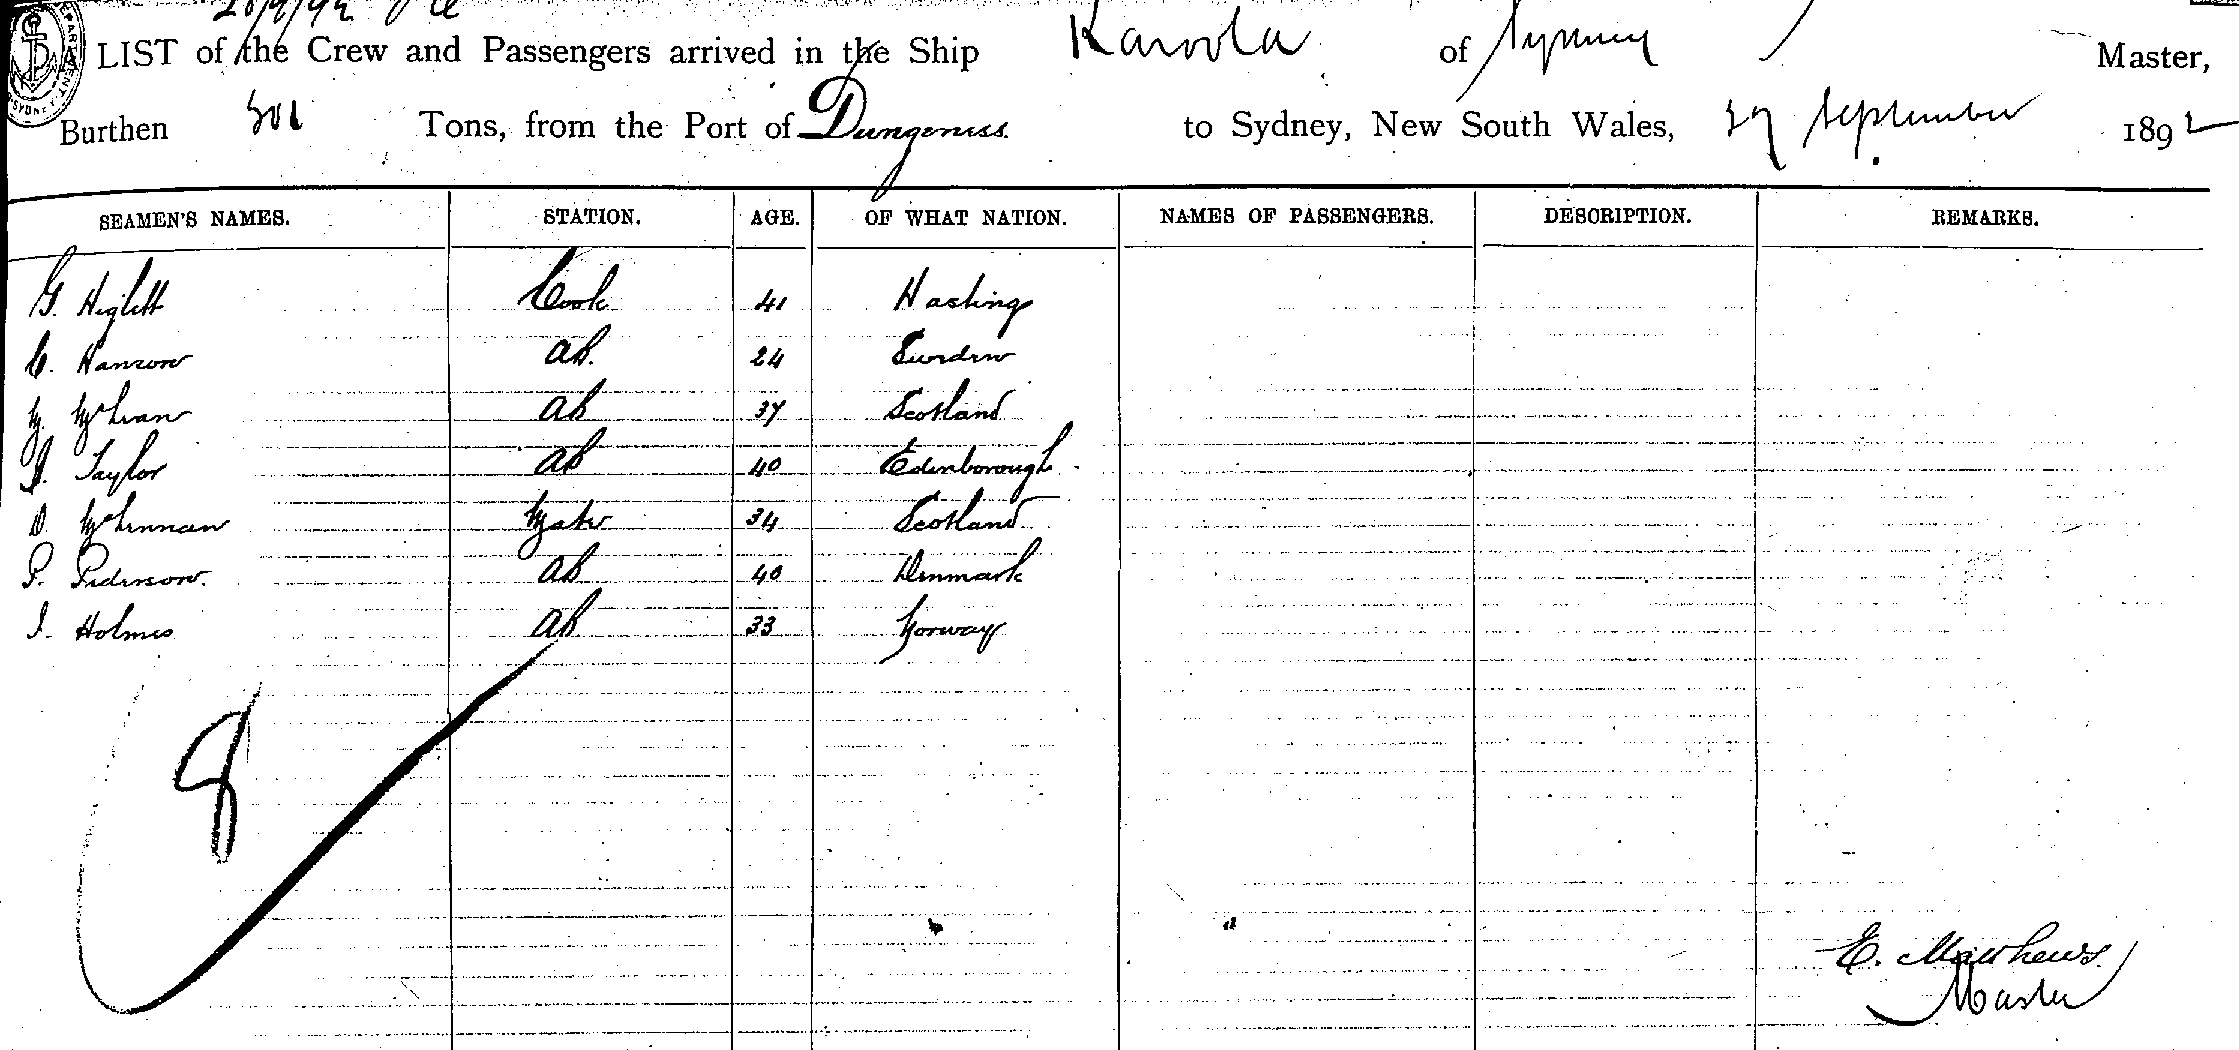 28/9/92
A LIST of the Crew and Passengers arrived in the Ship Karoola of Sydney Master,
Burthen 301 Tons, from the Port of Dungeness to Sydney, New South Wales, 27 September 1892
SEAMEN'S NAMES. STATION. AGE. OF WHAT NATION. NAMES OF PASSENGERS. DESCRIPTION. REMARKS.
G. Higlett Cook 41 Hasting
C. Hanson ab. 24 Sweden
M. McLean ab 37 Scotland
J. Taylor ab 40 Edinborough
D. McLennan Mate 34 Scotland
P. Pederson. ab 40 Denmark
I. Holmes ab 33 Norway
8
E. Matthews
Master